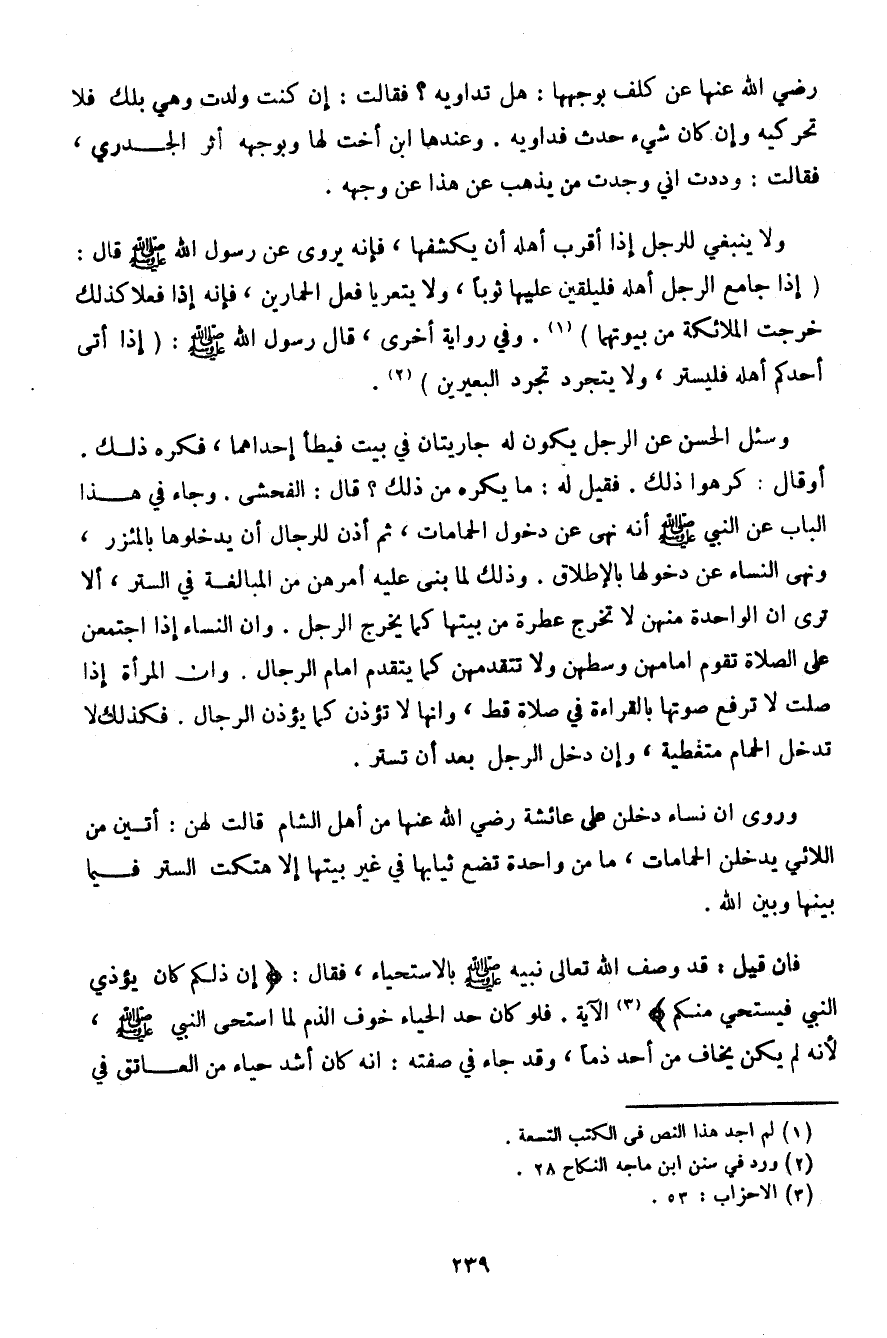 رضي الله عنها عن كلف بوجهها : هل تداويه ؟ فقالت : إن كنت ولدت وهي بلك فلا
تحركيه وإن كان شيء حدث فداويه . وعندها ابن أخت لها وبوجهه أثر الجدري ،
فقالت : وددت اني وجدت من يذهب عن هذا عن وجهه .
ولا ينبغي للرجل إذا أقرب أهله أن يكشفها ، فإنه يروى عن رسول الله ﷺ قال :
( إذا جامع الرجل أهله فليلقين عليها ثوباً ، ولا يتعريا فعل الحمارين ، فإنه إذا فعلا كذلك
خرجت الملائكة من بيوتهما ) (١) . وفي رواية أخرى ، قال رسول الله ﷺ : ( إذا أتى
أحدكم أهله فليستر ، ولا يتجرد تجرد البعيرين ) (٢) .
وسئل الحسن عن الرجل يكون له جاريتان في بيت فيطأ إحداهما ، فكره ذلك .
أوقال : كرهوا ذلك . فقيل له : ما يكره من ذلك ؟ قال : الفحشى . وجاء في هذا
الباب عن النبي ﷺ أنه نهى عن دخول الحمامات ، ثم أذن للرجال أن يدخلوها بالمئزر ،
ونهى النساء عن دخولها بالإطلاق . وذلك لما بنى عليه أمرهن من المبالغة في الستر ، ألا
ترى ان الواحدة منهن لا تخرج عطرة من بيتها كما يخرج الرجل . وان النساء إذا اجتمعن
على الصلاة تقوم امامهن وسطهن ولا تتقدمهن كما يتقدم امام الرجال . وان المرأة إذا
صلت لا ترفع صوتها بالقراءة في صلاة قط ، وانها لا تؤذن كما يؤذن الرجال . فكذلك لا
تدخل الحمام متغطية ، وإن دخل الرجل بعد أن تستر .
وروى ان نساء دخلن على عائشة رضي الله عنها من أهل الشام قالت لهن : أتين من
اللائي يدخلن الحمامات ، ما من واحدة تضع ثيابها في غير بيتها إلا هتكت الستر فيما
بينها وبين الله .
فان قيل : قد وصف الله تعالى نبيه ﷺ بالاستحياء ، فقال : ﴿ إن ذلكم كان يؤذي
النبي فيستحي منكم ﴾ (٣) الآية . فلو كان حد الحياء خوف الذم لما استحى النبي ﷺ ،
لأنه لم يكن يخاف من أحد ذماً ، وقد جاء في صفته : انه كان أشد حياء من العاتق في
(١) لم اجد هذا النص في الكتب التسعة .
(٢) ورد في سنن ابن ماجه النكاح ٢٨ .
(٣) الاحزاب : ٥٣ .
٢٣٩